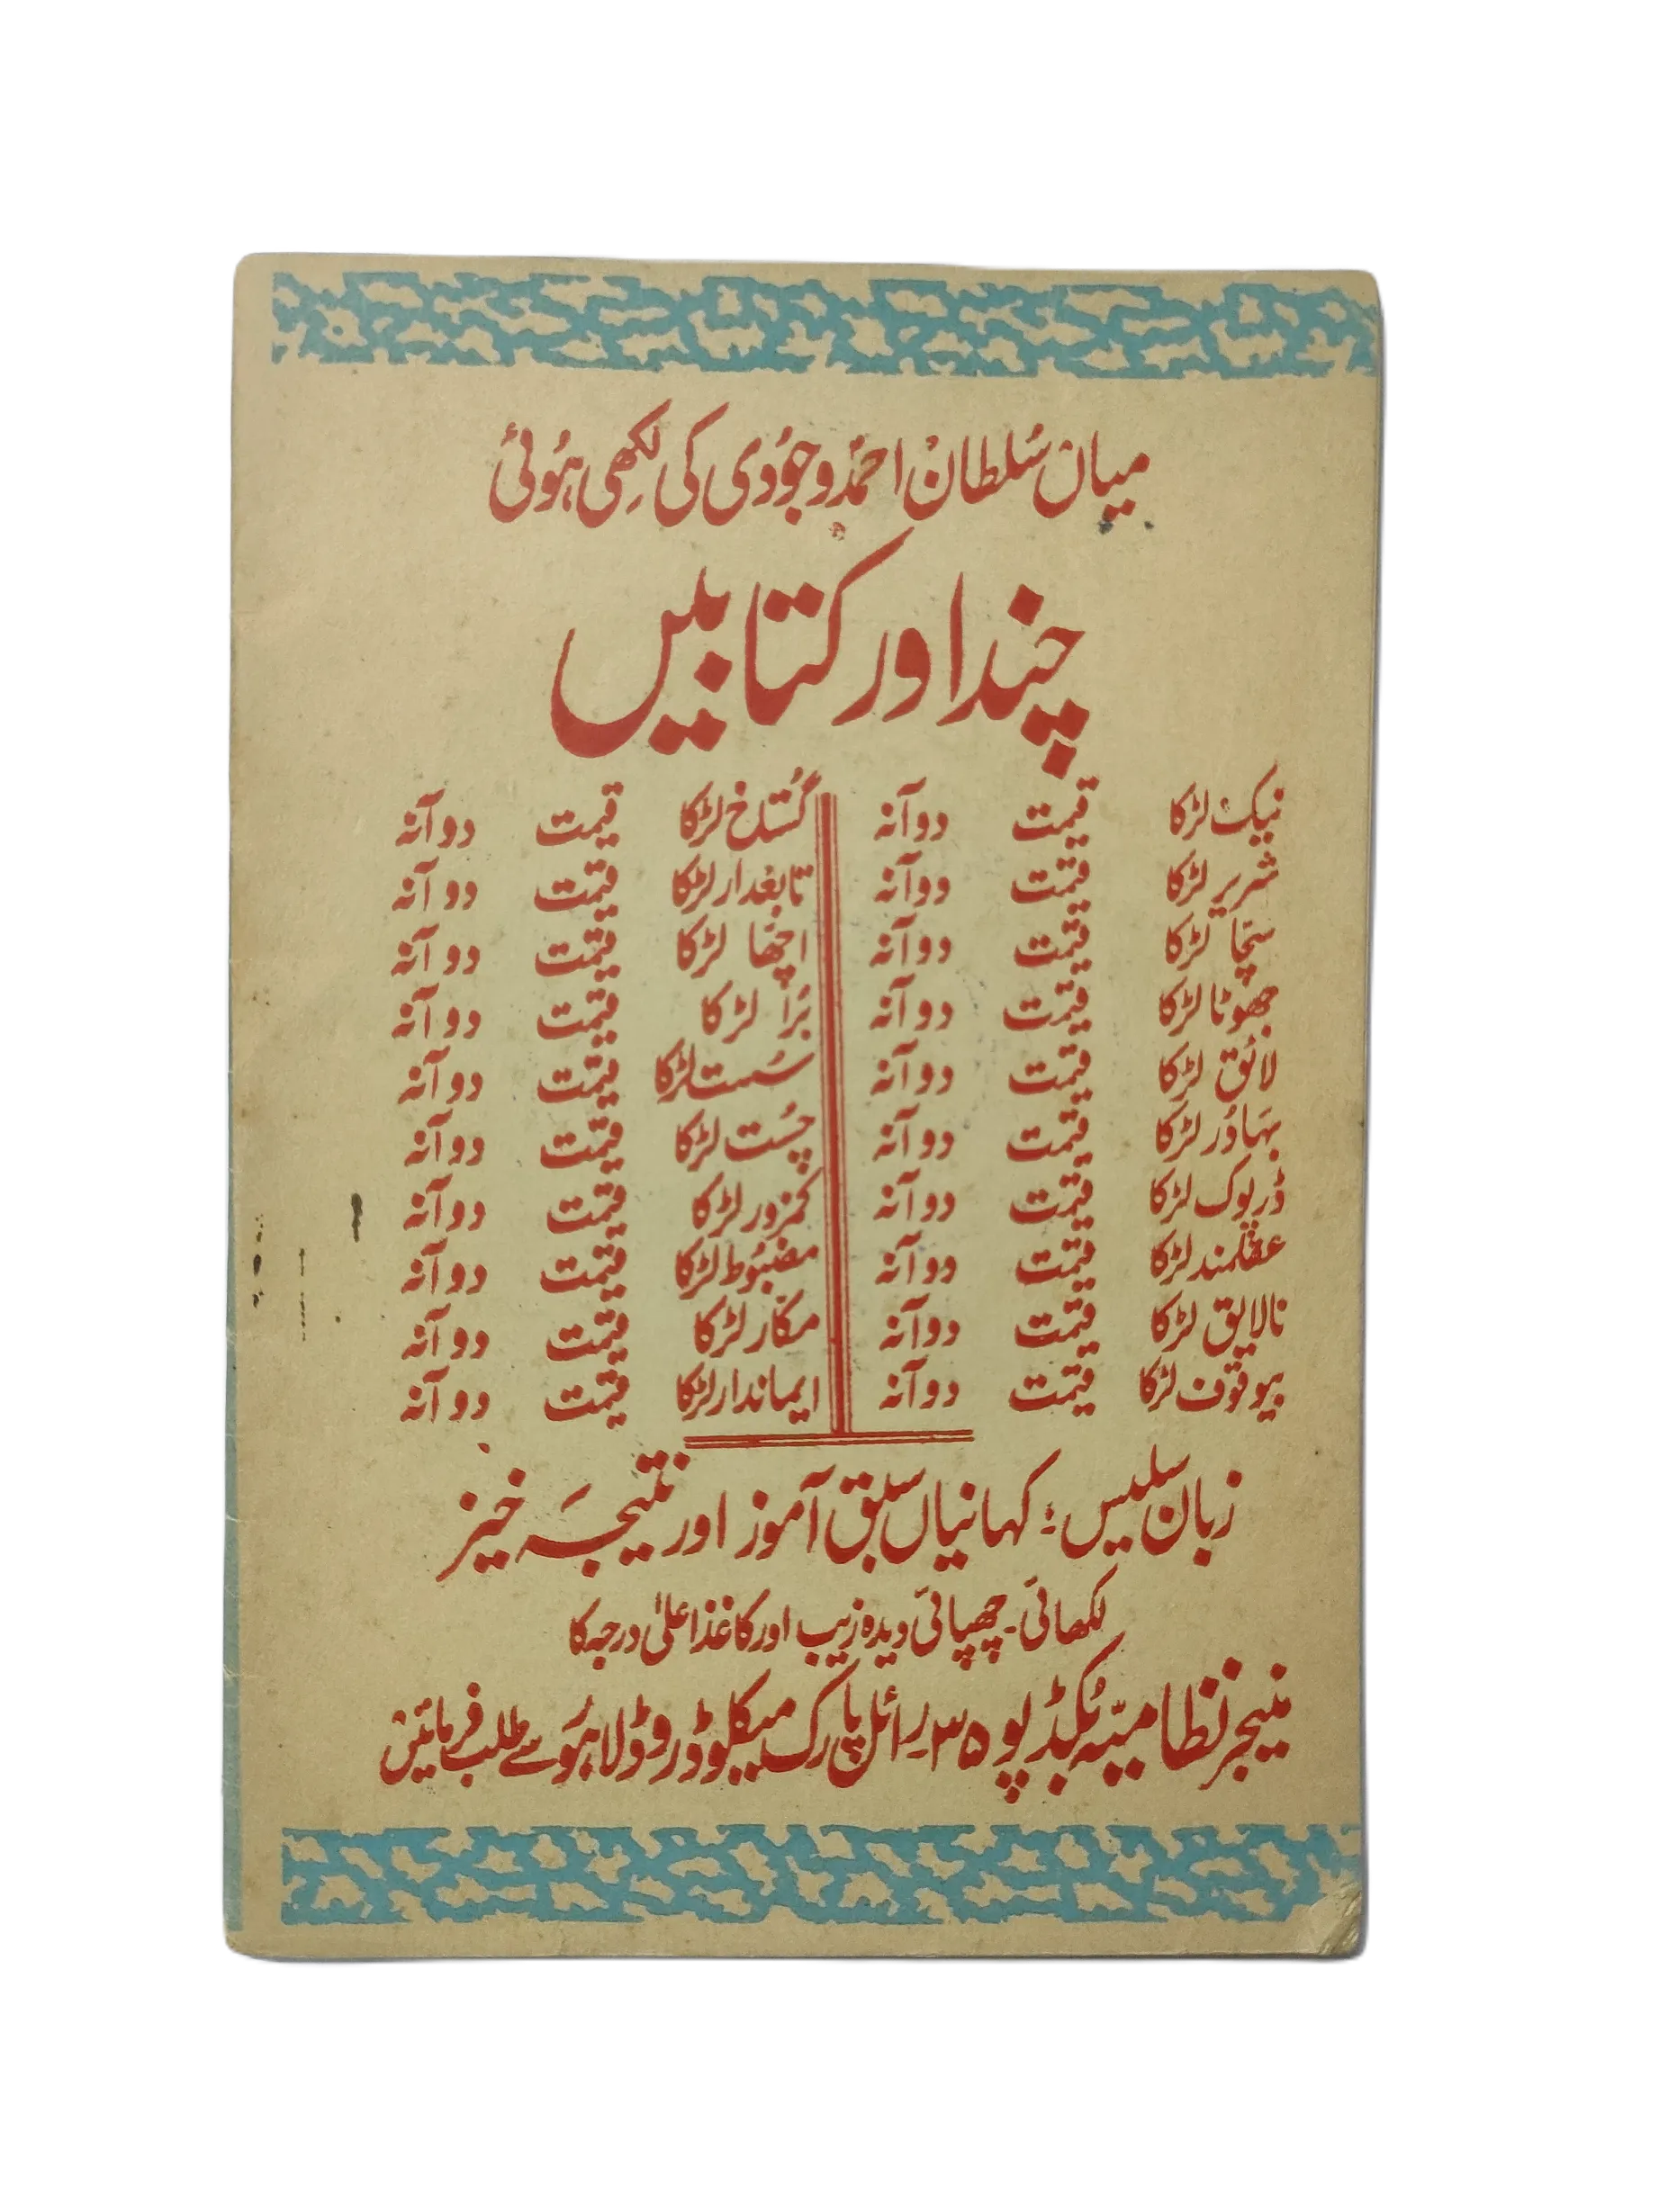 میاں سُلطان احمد وجوُدی کی لکھِی ہُوئی
چند اور کتابیں
نیک لڑکا قیمت دو آنہ گُستاخ لڑکا قیمت دو آنہ
شریر لڑکا قیمت دو آنہ تابعدار لڑکا قیمت دو آنہ
سچّا لڑکا قیمت دو آنہ اچھّا لڑکا قیمت دو آنہ
جھوٹا لڑکا قیمت دو آنہ بُرا لڑکا قیمت دو آنہ
لائق لڑکا قیمت دو آنہ سُست لڑکا قیمت دو آنہ
بہادُر لڑکا قیمت دو آنہ چُست لڑکا قیمت دو آنہ
ڈرپوک لڑکا قیمت دو آنہ کمزور لڑکا قیمت دو آنہ
عقلمند لڑکا قیمت دو آنہ مضبُوط لڑکا قیمت دو آنہ
نالایق لڑکا قیمت دو آنہ مکّار لڑکا قیمت دو آنہ
بیوقوف لڑکا قیمت دو آنہ ایماندار لڑکا قیمت دو آنہ
زبان سلیس؛ کہانیاں سبق آموز اور نتیجہ خیز
لکھائی۔ چھپائی دیدہ زیب اور کاغذ اعلیٰ درجہ کا
منیجر نظامیہّ بُکڈپو ۳۵ رائل پارک میکلوڈ روڈ لاہُور سے طلب فرمائیں